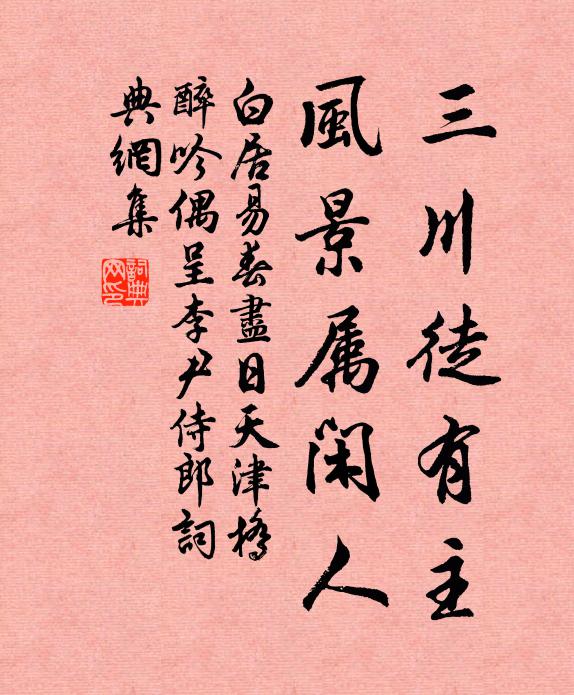 三川徒有主
風景属閑人
白居易春盡日天津橋
醉吟偶呈李尹侍郎詞
典網集
詞典网印